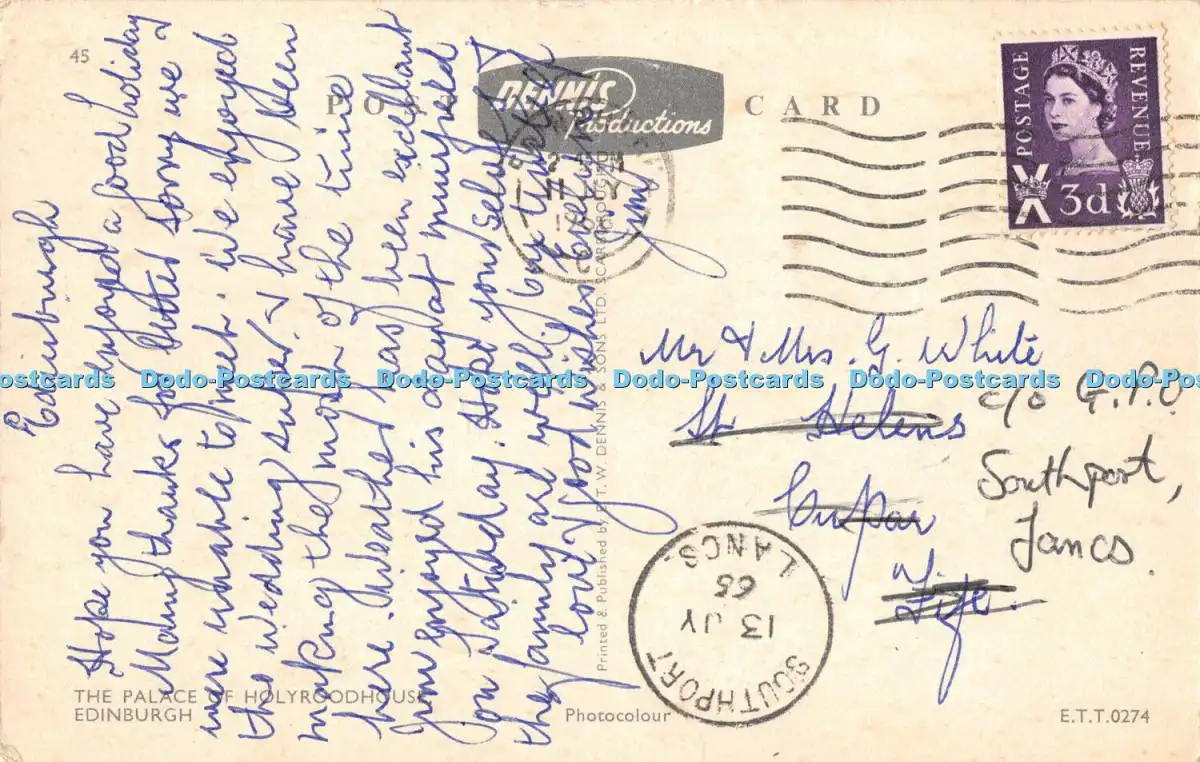 45
POST CARD
DENNIS
Productions
POSTAGE
REVENUE
3d
Edinburgh
Hope you have enjoyed a good holiday
Many thanks for letter sorry we
were unable to meet. We enjoyed
the wedding super & have been
making the most of the time
here. Weather has been excellant
Jim enjoyed his day at muirfield
on Saturday. Hope yourself &
the family are well. Our
love & good wishes
Jim
Mr & Mrs. G. White
St Helens
Cupar
Fife.
c/o G.P.O
Southport,
Lancs.
SOUTHPORT
13 JY
65
LANCS.
Printed & Published by E. T. W. DENNIS & SONS LTD. SCARBOROUGH
THE PALACE OF HOLYROODHOUSE
EDINBURGH
Photocolour
E.T.T.0274
Dodo-Postcards Dodo-Postcards Dodo-Postcards Dodo-Postcards Dodo-Postcards Dodo-Postcards